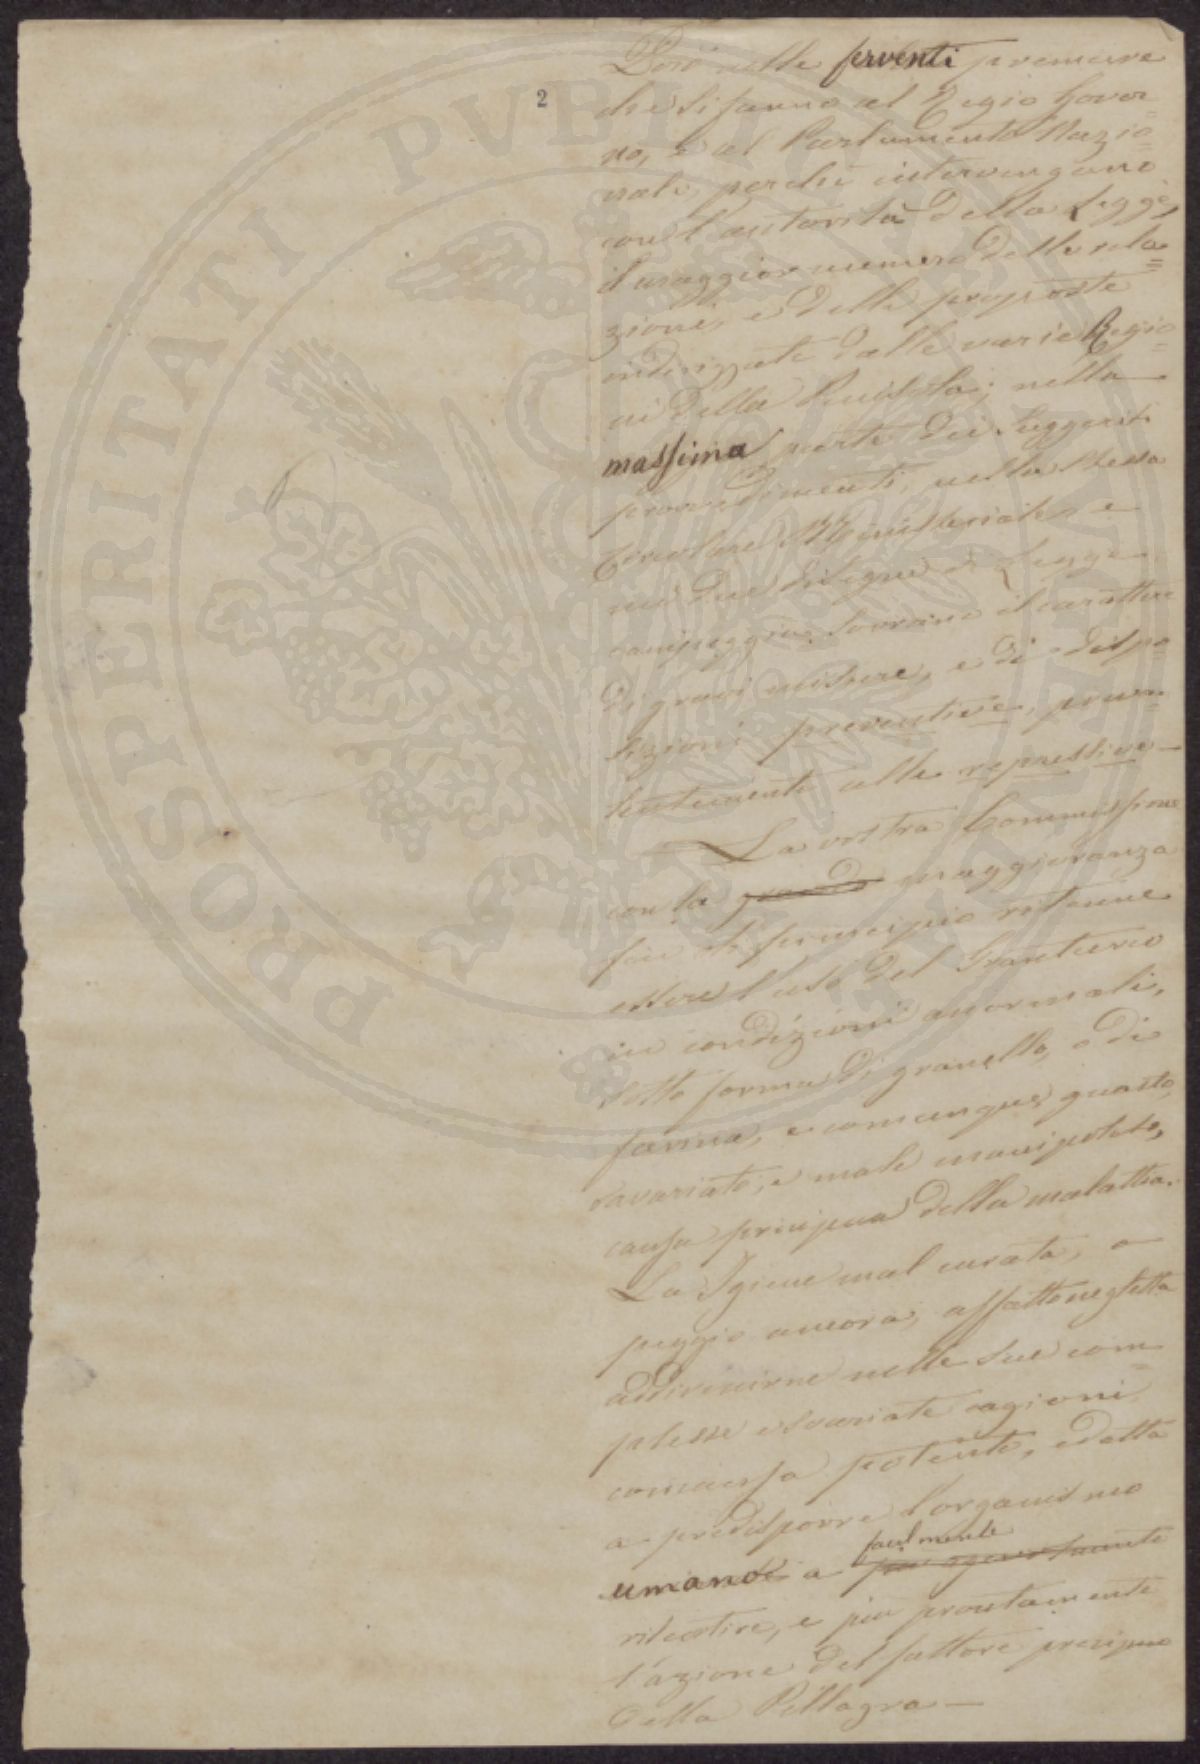 2
Però nelle ferventi premure
che si fanno al Regio Gover=
no, e al Parlamento Nazio=
nale, perchè intervengano
con l'autorità della Legge,
il maggior numero delle rela=
zioni, e delle proposte
indirizzate dalle varie Regio=
ni della Penisola; nella
massima parte dei suggeriti
provvedimenti, nella stessa
Circolare Ministeriale, e
nei due disegni di Legge
campeggia sovrano il carattere
di gravi misure, e di dispo=
sizioni preventive, preva=
lentemente alle repressive—
La vostra Commissione
con la grande maggioranza
fin di principio ritenne
essere l'uso del Granturco
in condizioni anormali,
sotto forma di granello, o di
farina, e comunque guasto,
avariato, e male manipolato,
causa precipua della malattia.
La Igiene mal curata, o
peggio ancora, affatto negletta
addivenirne nelle sue com=
plesse e svariate ragioni
concausa potente, adatta
a predisporre l'organismo
umano a
facilmente
risentire, e più prontamente
l'azione del fattore precipuo
della Pellagra—
PROSPERITATI PVBLICAE